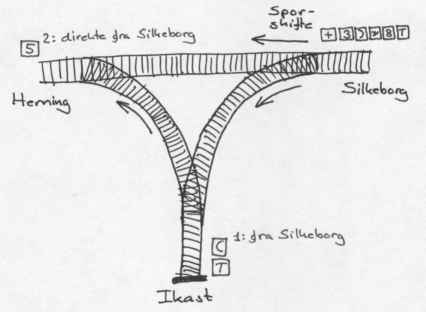 Spor-
skifte
5 2: direkte fra Silkeborg
+ 3 > * 8 T
Herning
Silkeborg
C 1: fra Silkeborg
T
Ikast